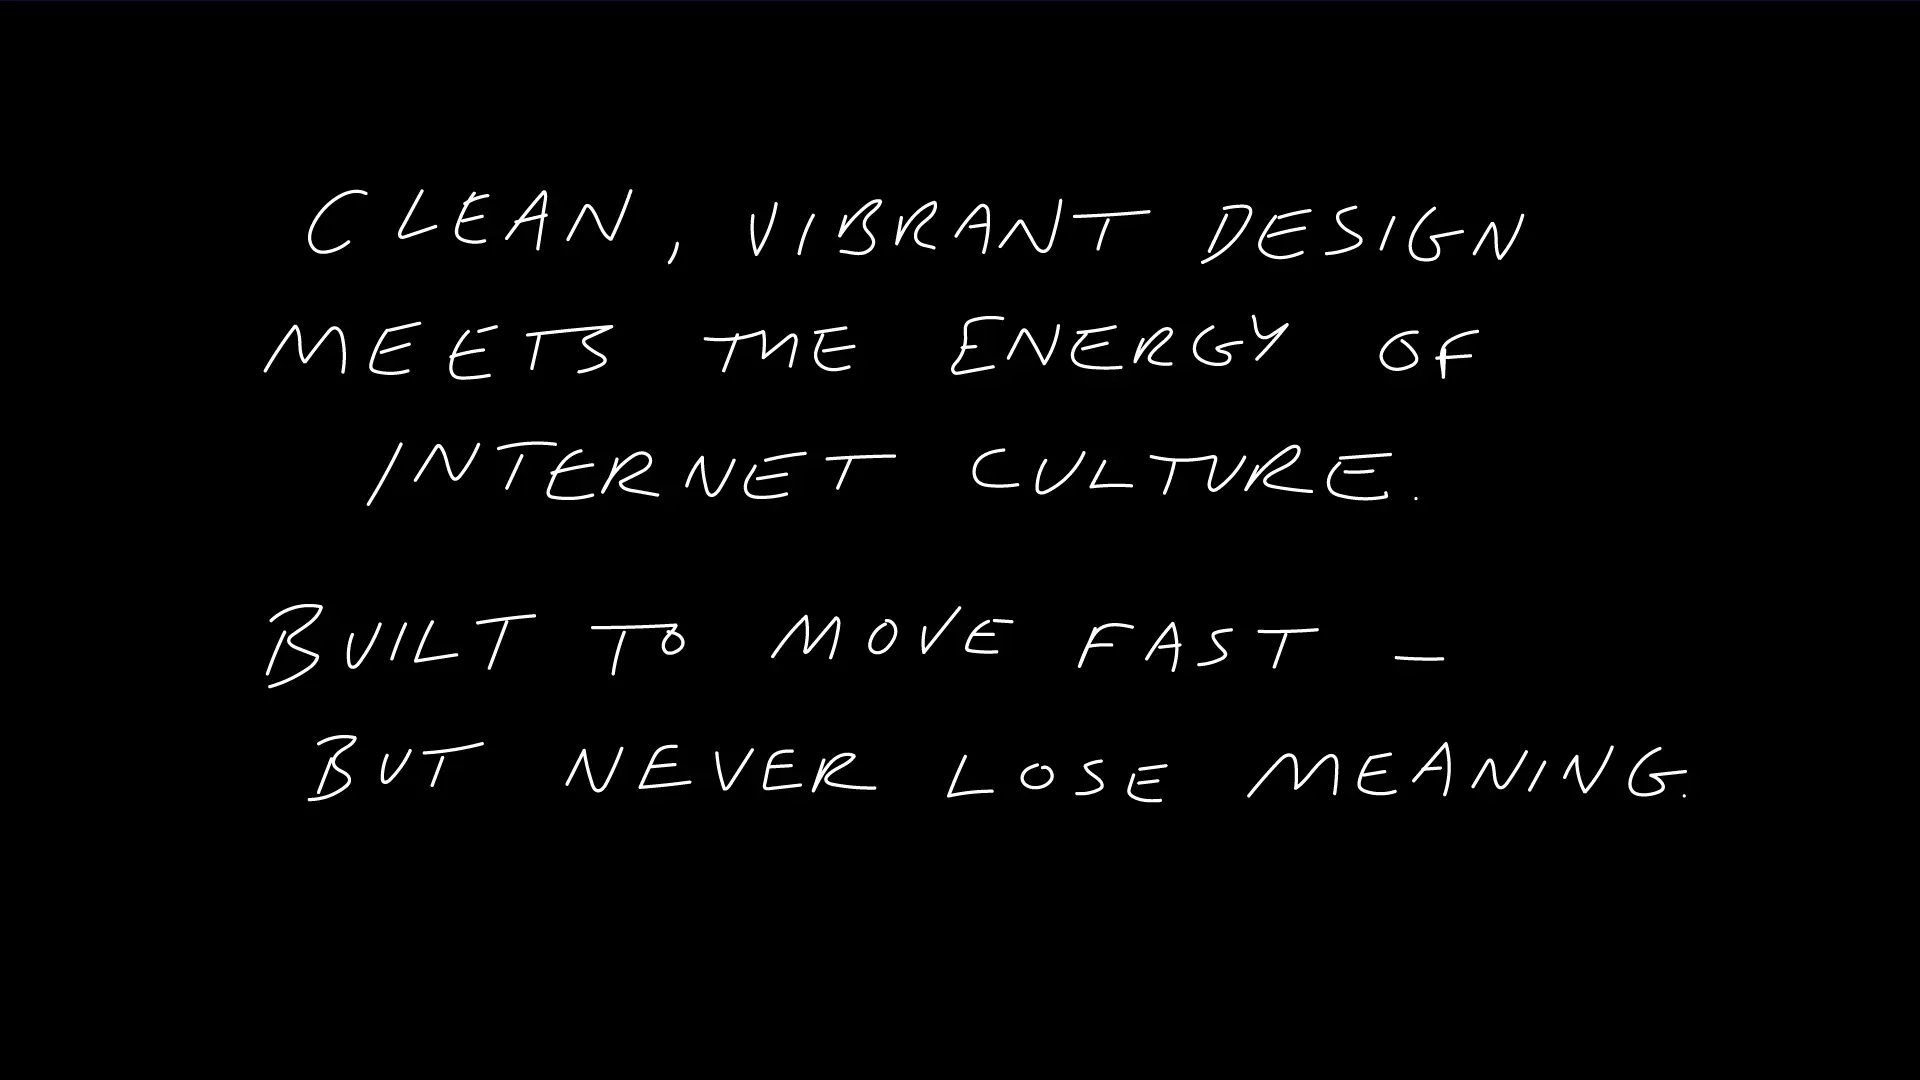 CLEAN, VIBRANT DESIGN
MEETS THE ENERGY OF
INTERNET CULTURE.
BUILT TO MOVE FAST –
BUT NEVER LOSE MEANING.